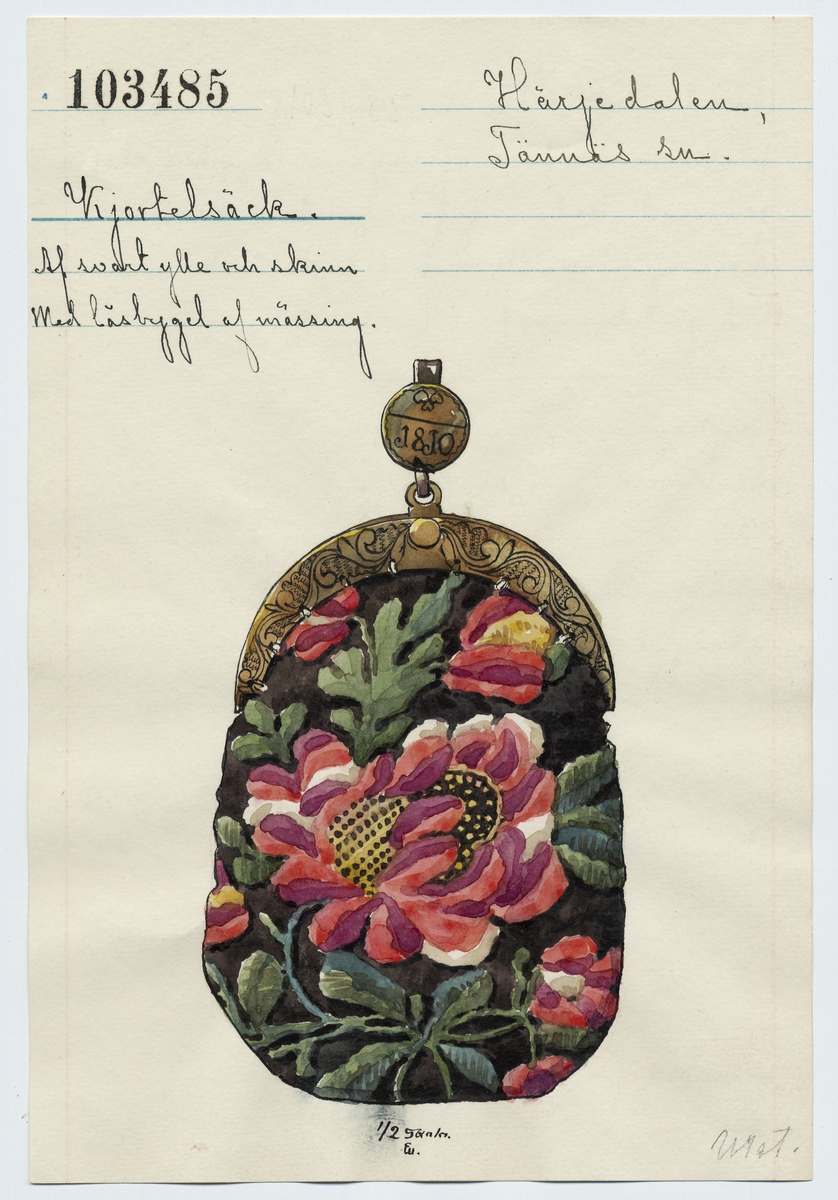 103485
Härjedalen,
Tännäs sn.
Kjortelsäck.
Af svart ylle och skinn
Med låsbygel af mässing.
1/2